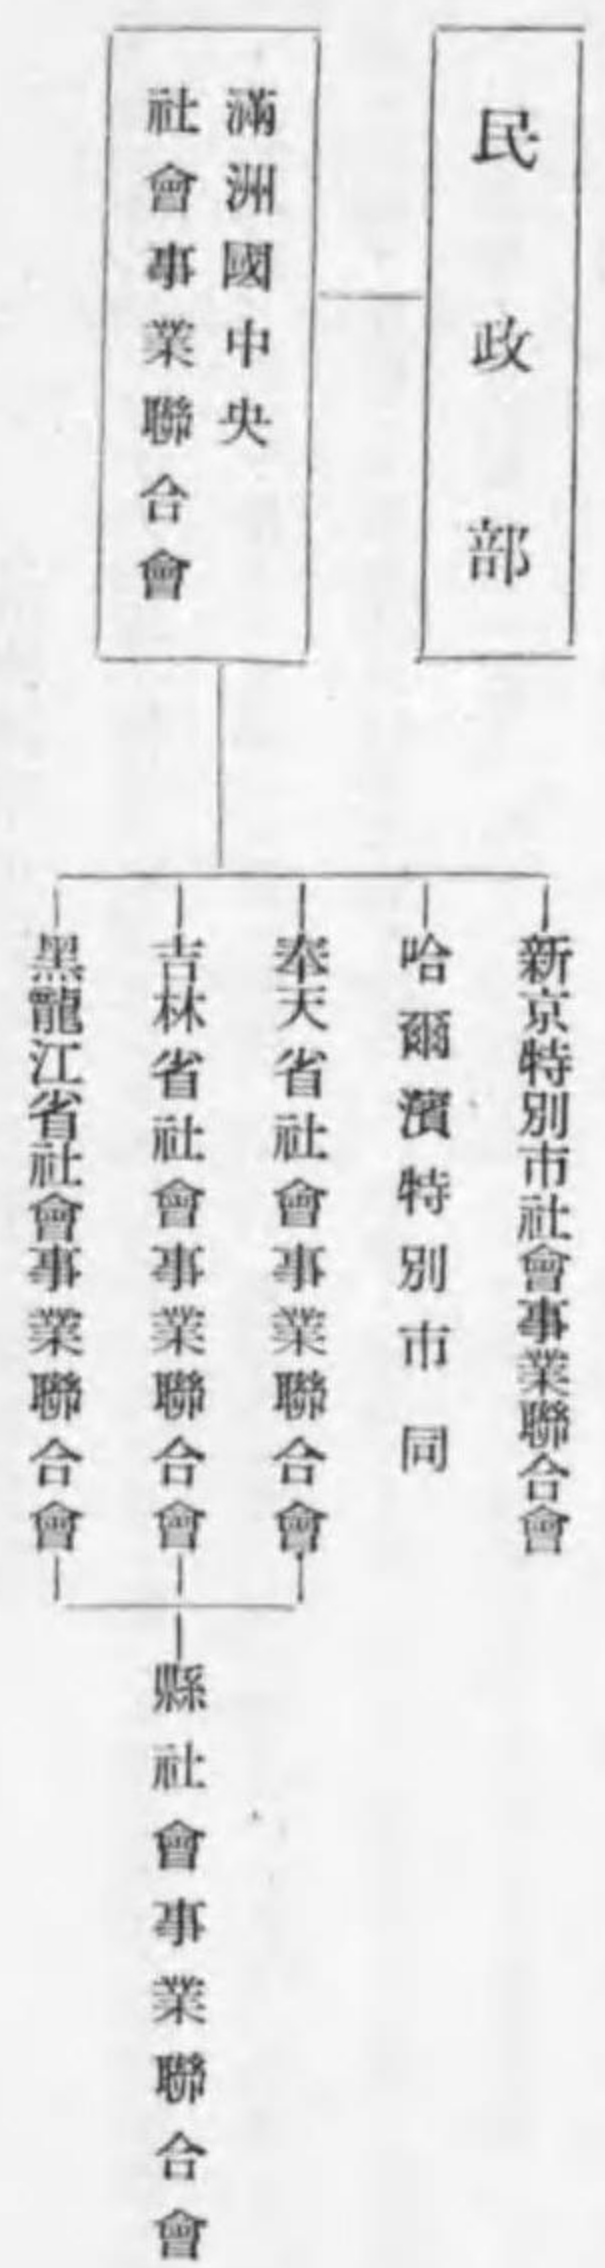 民政部
滿洲國中央
社會事業聯合會
新京特別市社會事業聯合會
哈爾濱特別市同
奉天省社會事業聯合會
吉林省社會事業聯合會
黑龍江省社會事業聯合會
縣社會事業聯合會